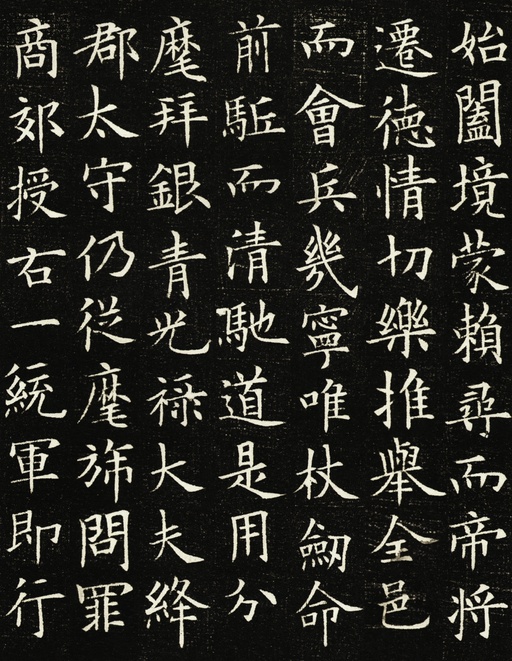 始闔境蒙賴尋而帝将
遷德情切樂推舉全邑
而會兵幾寧唯杖劒命
前駈而清馳道是用分
麾拜銀青光祿大夫絳
郡太守仍從麾旆問罪
商郊授右一統軍即行